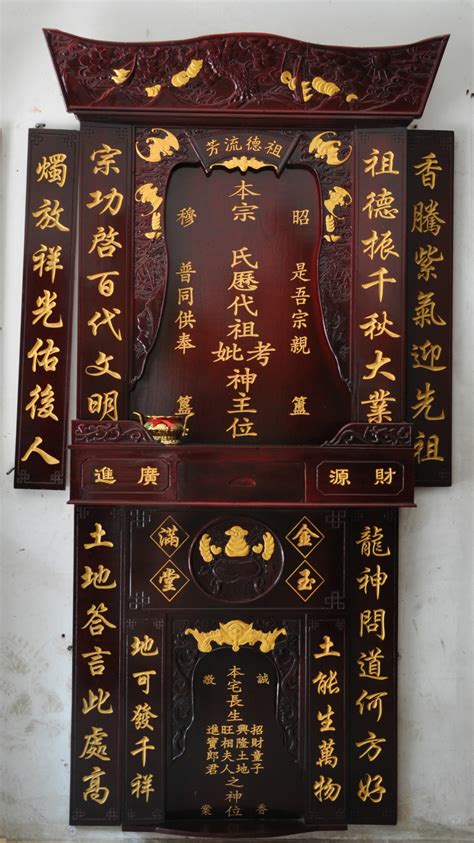 祖德流芳
香騰紫氣迎先祖
祖德振千秋大業
昭 是吾宗親 簠
本宗 氏歷代祖考妣神主位
穆 普同供奉 簋
宗功啓百代文明
燭放祥光佑後人
財源
廣進
金玉
滿堂
龍神問道何方好
土能生萬物
誠敬
本宅長生
招財童子
興隆土地
旺相夫人
進寶郎君
之神位
香案
地可發千祥
土地答言此處高